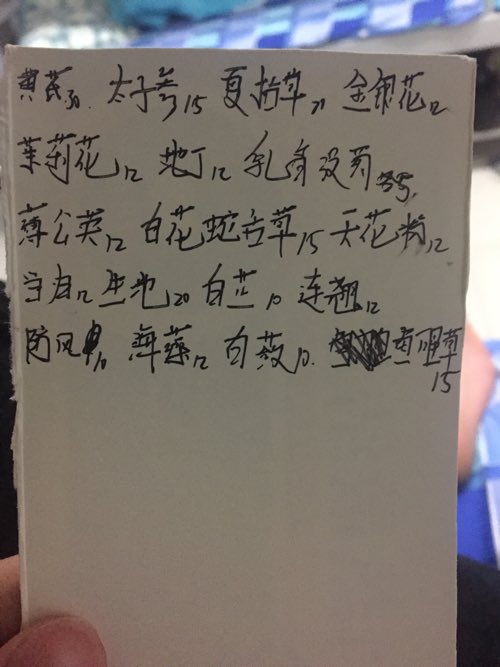 黄芪30 太子参15 夏枯草 金银花12
茉莉花12 地丁12 乳香没药
蒲公英12 白花蛇舌草15 天花粉12
当归12 生地20 白芷10 连翘12
防风10 海藻12 白蔹10 鱼腥草
15